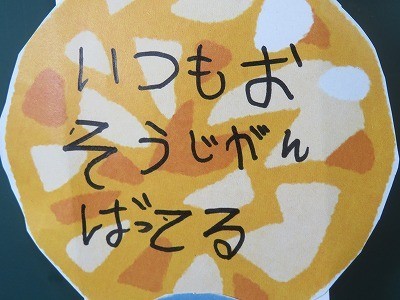 いつもお
そうじがん
ばってる